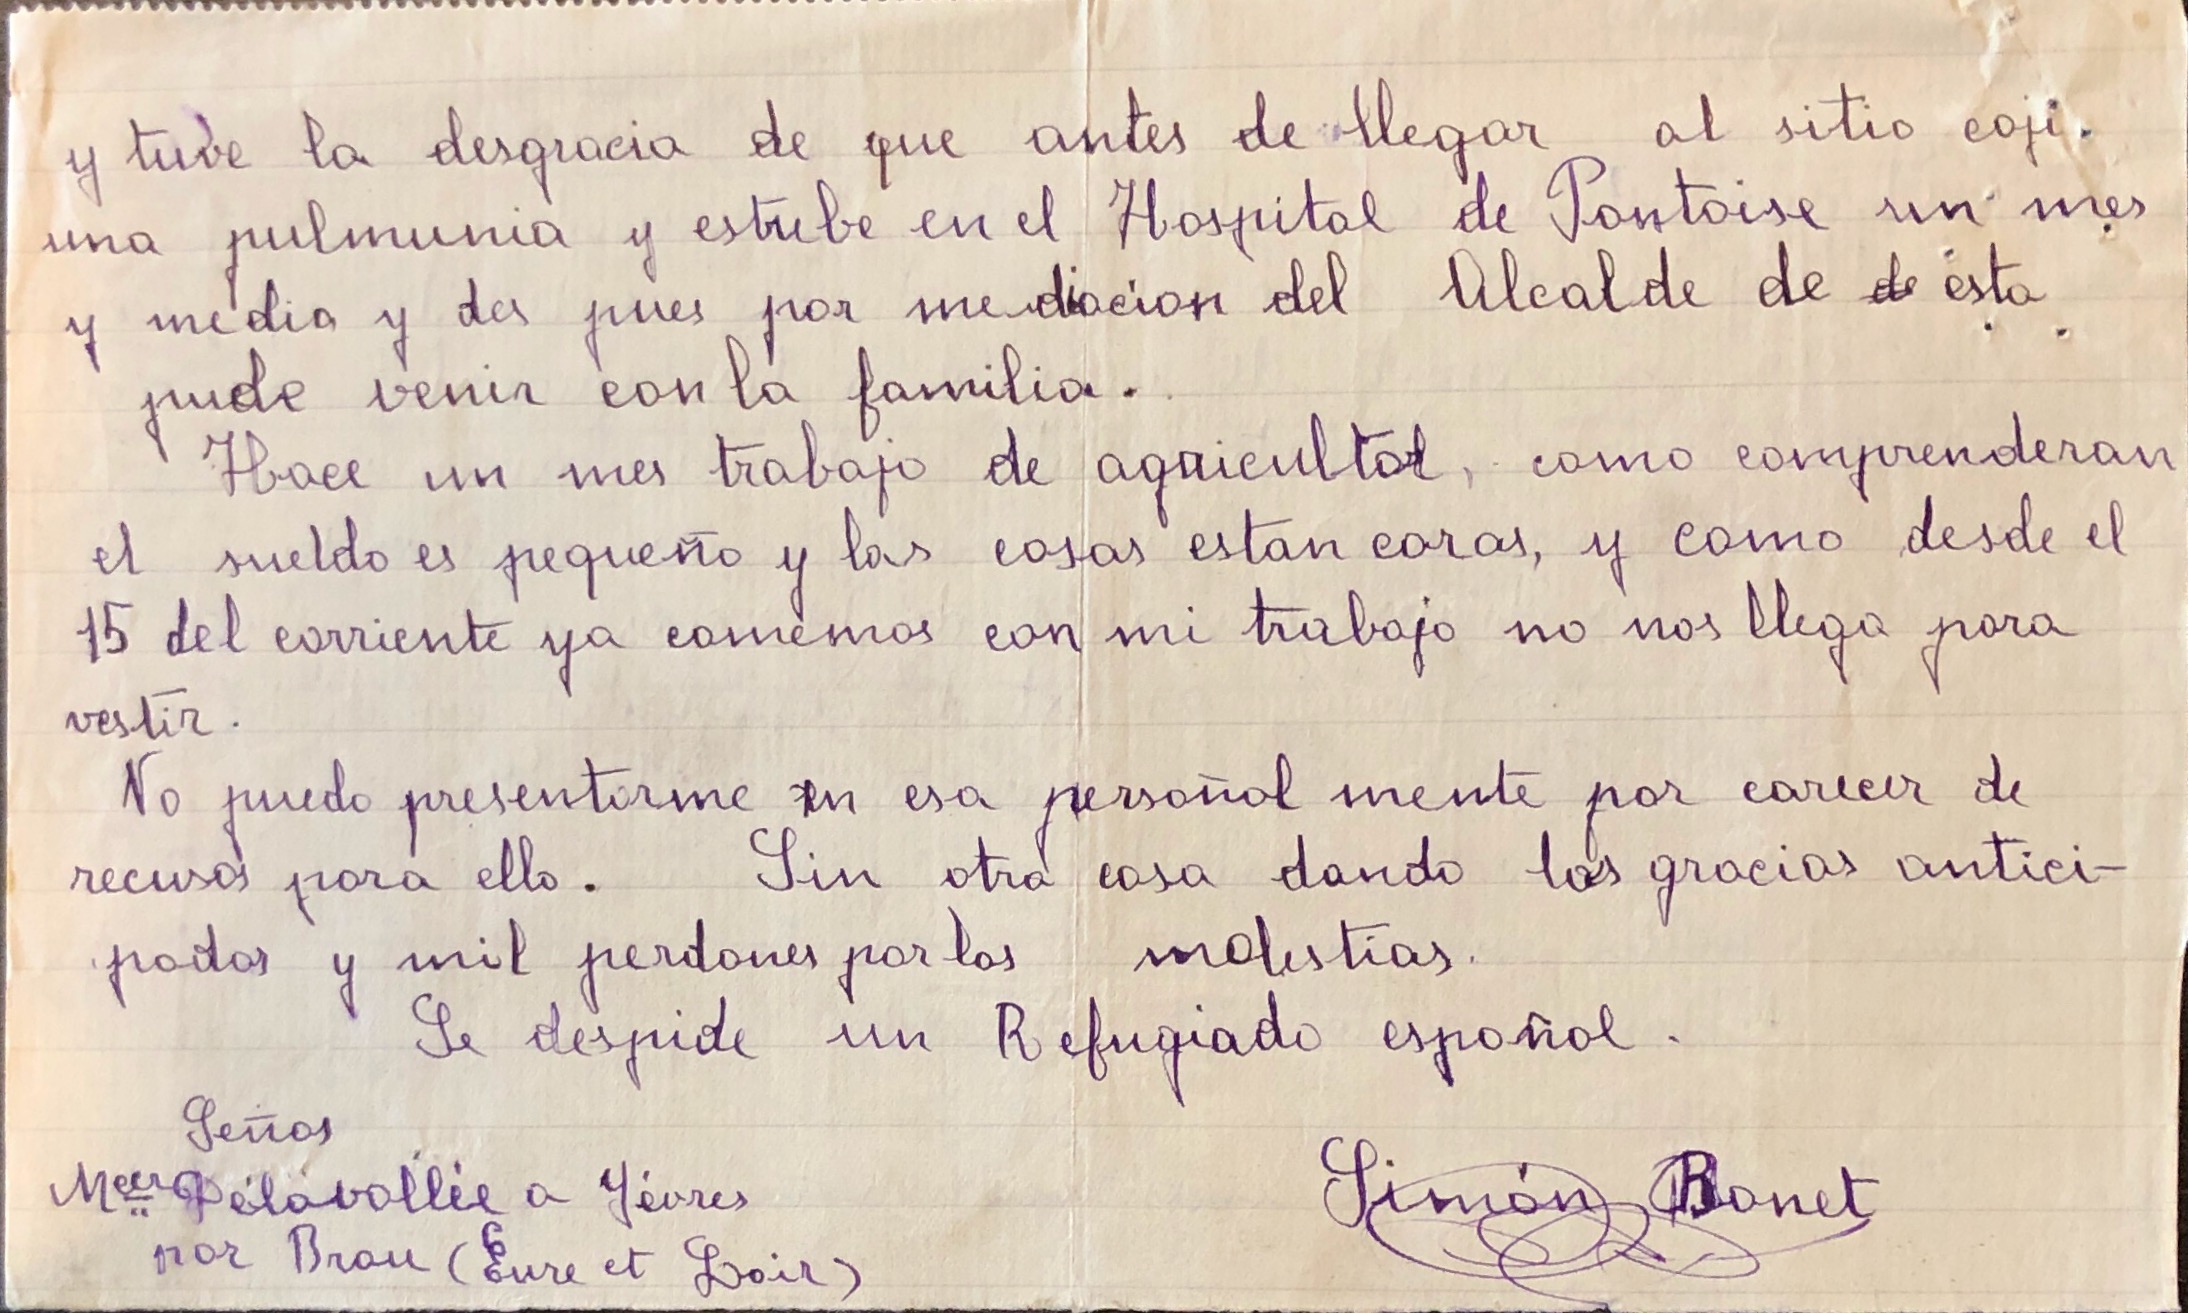 y tuve la desgracia de que antes de llegar al sitio coji.
una pulmunia y estube en el Hospital de Pontoise un mes
y media y des pues por mediacion del Alcalde de de esta
pude venir con la familia.
Hace un mes trabajo de agricultor, como comprenderan
el sueldo es pequeño y las cosas estan caras, y como desde el
15 del corriente ya comemos con mi trabajo no nos llega para
vestir.
No puedo presentarme en esa persoñal mente por carecer de
recusos para ello. Sin otra cosa dando las gracias antici-
padas y mil perdones por las molestias.
Se despide un Refugiado español.
Señas
Delavallée a Yèvres
par Brou (Eure et Loir)
Simón Bonet